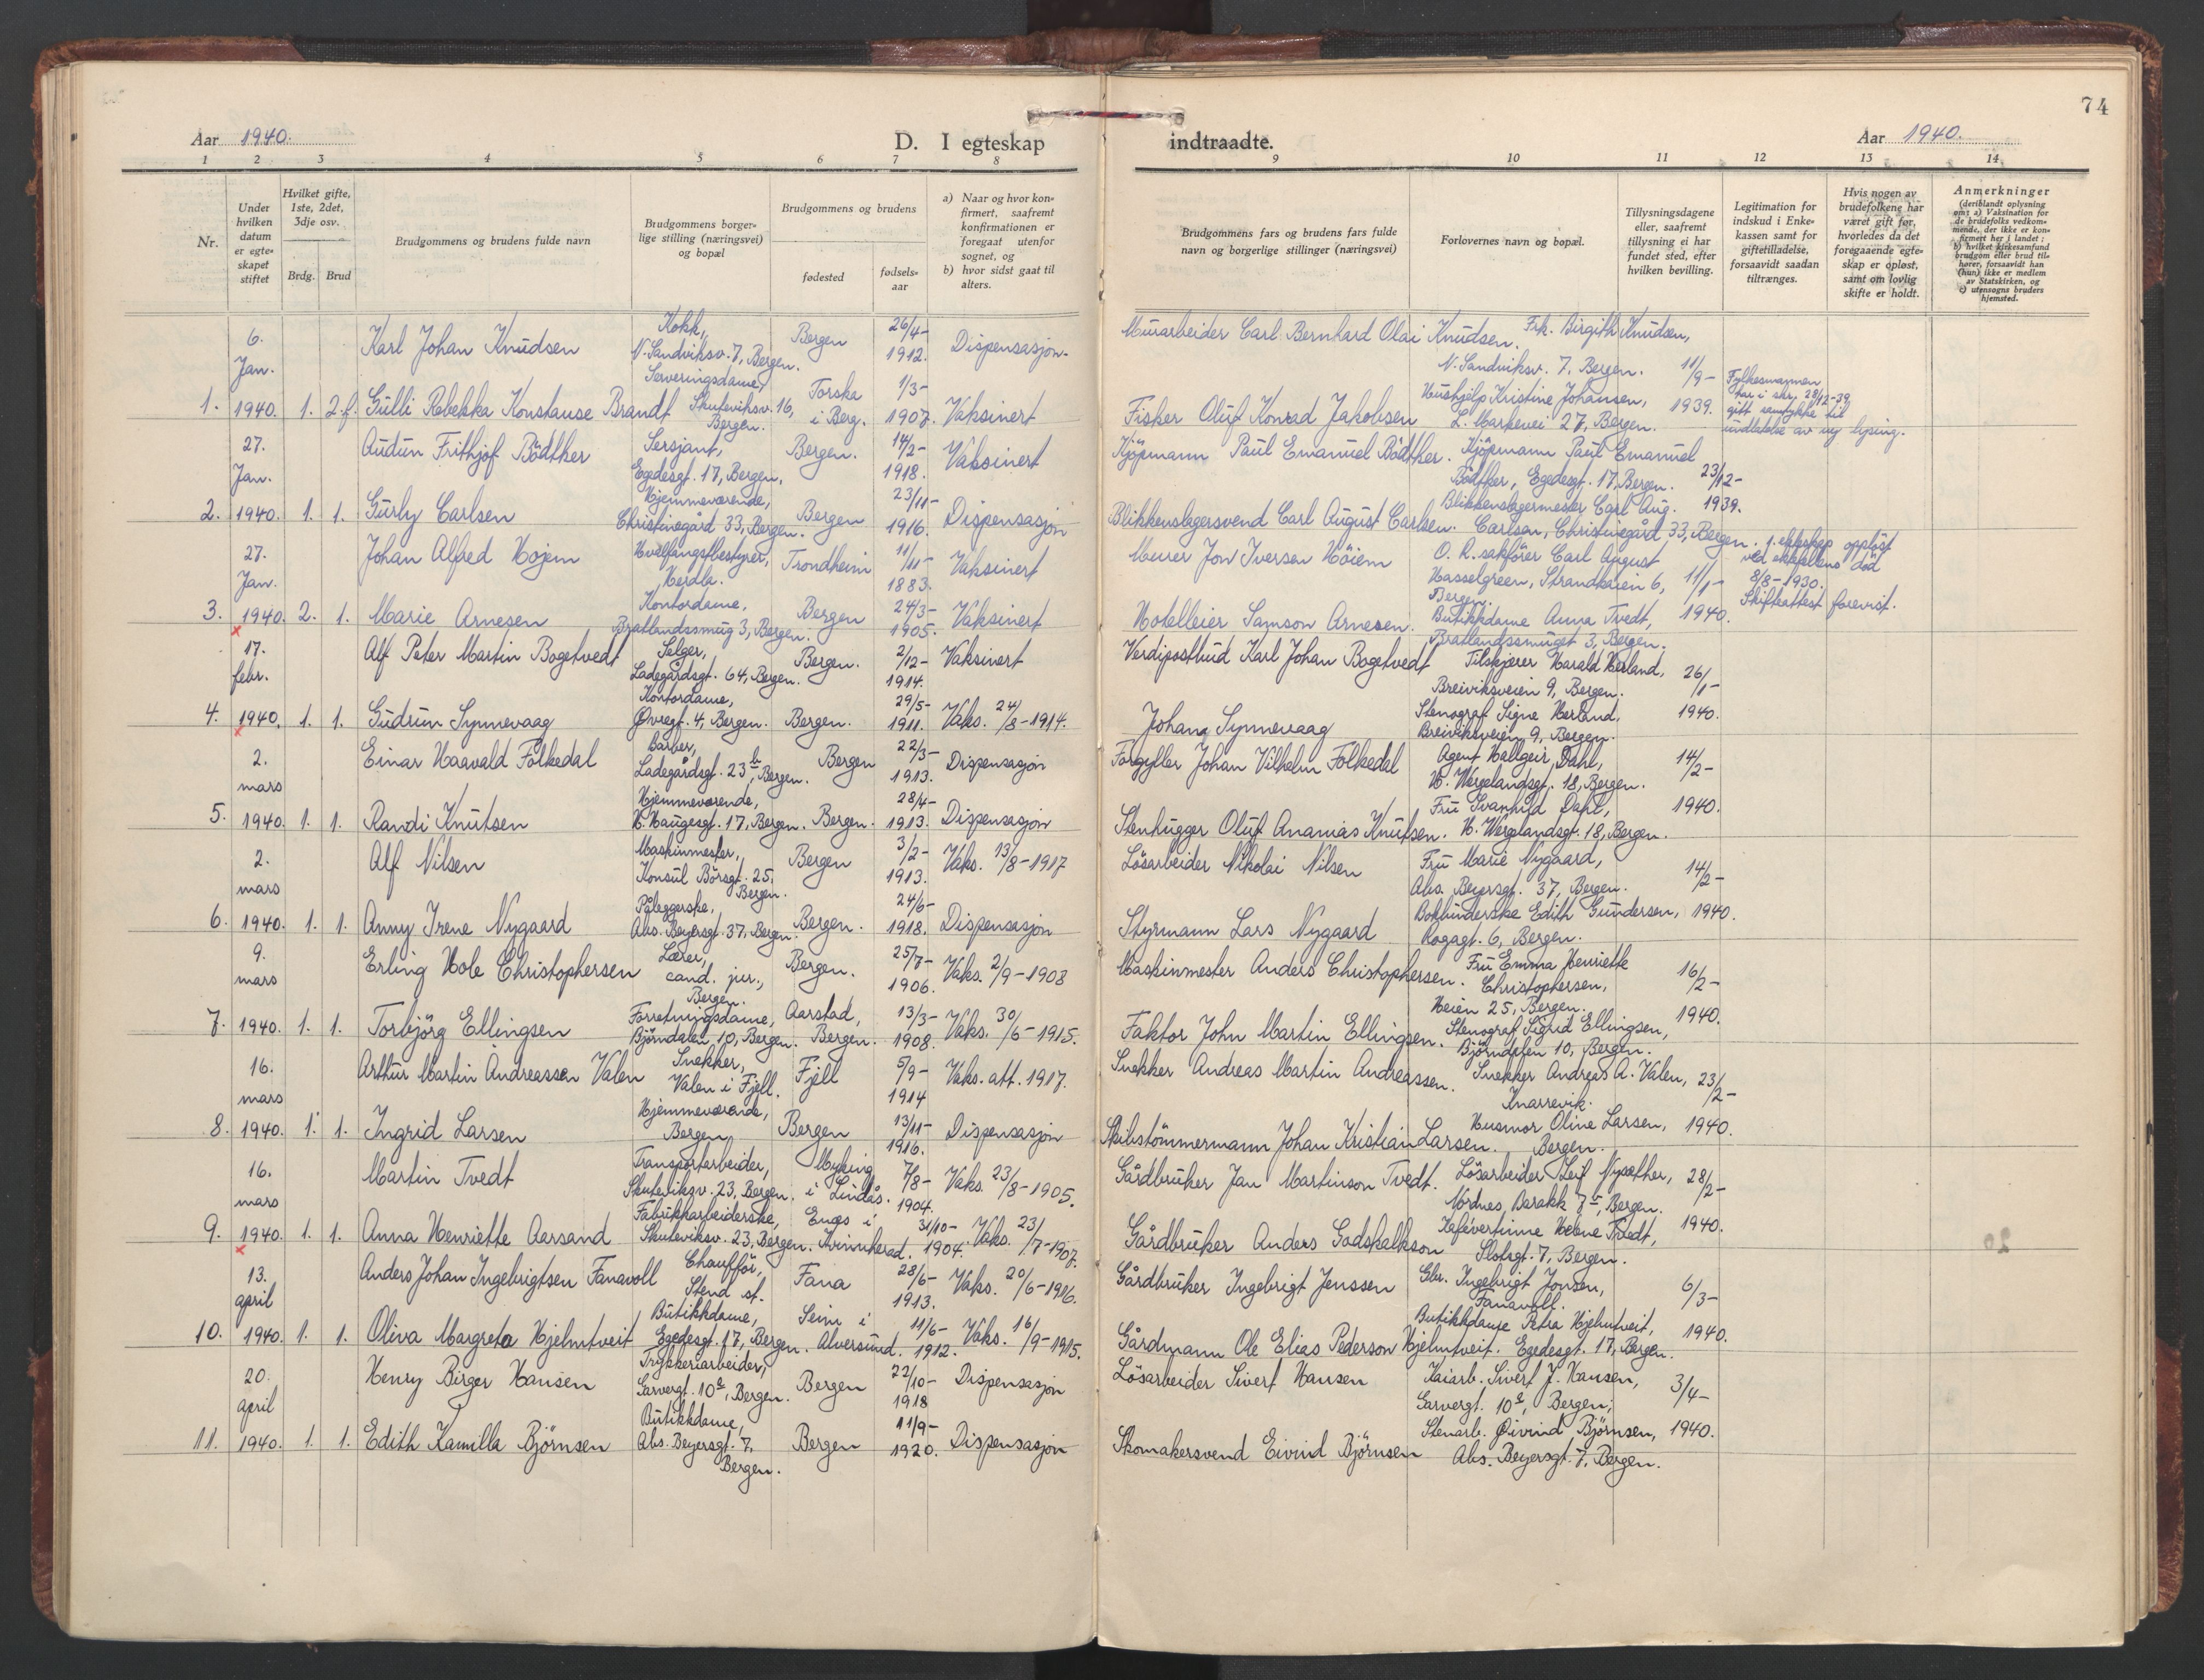 74
Aar 1940.
D. I egteskap indtraadte.
Aar 1940.
1 2 3 4 5 6 7 8 9 10 11 12 13 14
Nr.
Under hvilken datum er egteskapet stiftet
Hvilket gifte, 1ste, 2det, 3dje osv.
Brdg. Brud
Brudgommens og brudens fulde navn
Brudgommens borgerlige stilling (næringsvei) og bopæl
Brudgommens og brudens
fødested
fødselsaar
a) Naar og hvor konfirmert, saafremt konfirmationen er foregaat utenfor sognet, og
b) hvor sidst gaat til alters.
Brudgommens fars og brudens fars fulde navn og borgerlige stillinger (næringsvei)
Forlovernes navn og bopæl.
Tillysningsdagene eller, saafremt tillysning ei har fundet sted, efter hvilken bevilling.
Legitimation for indskud i Enkekassen samt for giftetilladelse, forsaavidt saadan tiltrænges.
Hvis nogen av brudefolkene har været gift før, hvorledes da det foregaaende egteskap er opløst, samt om lovlig skifte er holdt.
Anmerkninger
(deriblandt oplysning om: a) Vaksination for de brudefolks vedkommende, der ikke er konfirmert her i landet;
b) hvilket kirkesamfund brudgom eller brud tilhører, forsaavidt han (hun) ikke er medlem av Statskirken, og
c) utensogns bruders hjemsted.
1. 6. Jan. 1940. 1. 2.f.
Karl Johan Knudsen
Kokk, N. Sandviksv. 7, Bergen.
Bergen 26/4-1912. Dispensasjon.
Murarbeider Carl Bernhard Olai Knudsen.
Frk. Birgith Knudsen, N. Sandviksv. 7, Bergen.
11/9-1939.
Gulli Rebekka Konstanse Brandt
Serveringsdame, Skuteviksv. 16, Bergen.
Torska i Berg. 1/3-1907. Vaksinert
Fisker Oluf Konrad Jakobsen
Hushjelp Kristine Johansen, L. Markevei 27, Bergen.
Fylkesmannen har i skr. 28/12-39 gitt samtykke til undlatelse av ny lysing.
2. 27. Jan. 1940. 1. 1.
Audun Frithjof Bödtker
Sersjant, Egedesgt. 17, Bergen.
Bergen. 14/2-1918. Vaksinert
Kjöpmann Paul Emanuel Bödtker.
Kjöpmann Paul Emanuel Bödtker, Egedesgt. 17, Bergen.
23/12-1939.
Gurly Carlsen
Hjemmeværende, Christinegård 33, Bergen.
Bergen 23/11-1916. Dispensasjon
Blikkenslagersvend Carl August Carlsen.
Blikkenslagermester Carl Aug. Carlsen, Christinegård 33, Bergen.
3. 27. Jan. 1940. 2. 1.
Johan Alfred Højem
Hvalfangstbestyrer, Herdla.
Trondheim 11/11-1883. Vaksinert
Murer Jon Iversen Höiem
O. R. sakförer Carl August Hasselgreen, Strandkaien 6, Bergen.
11/1-1940.
1. ekteskap opplöst ved ektefellens död 8/8-1930. Skifteattest forevist.
Marie Arnesen
Kontordame, Bratlandssmug 3, Bergen.
Bergen 24/3-1905. Vaksinert
Hotelleier Samson Arnesen.
Butikkdame Anna Tvedt, Bratlandssmuget 3, Bergen.
4. x 17. febr. 1940. x 1. 1.
Alf Peter Martin Bogetvedt
Selger, Ladegårdsgt. 64, Bergen.
Bergen. 2/12-1914. Vaksinert
Verdipostbud Karl Johan Bogetvedt
Tilskjærer Harald Herland, Breiviksveien 9, Bergen.
26/1-1940.
Gudrun Synnevaag
Kontordame, Øvregt. 4, Bergen.
Bergen. 29/5-1911. Vaks. 24/8-1914.
Johan Synnevaag
Stenograf Signe Herland, Breiviksveien 9, Bergen.
5. 2. mars 1940. 1. 1.
Einar Haavald Folkedal
Barber, Ladegårdsgt. 23 b, Bergen.
Bergen 22/3-1913. Dispensasjon
Forgyller Johan Vilhelm Folkedal
Agent Hallgeir Dahl, H. Wergelandsgt. 18, Bergen.
14/2-1940.
Randi Knutsen
Hjemmeværende, H. Haugesgt. 17, Bergen.
Bergen. 28/4-1913. Dispensasjon
Stenhugger Oluf Ananias Knutsen.
Fru Svanhild Dahl, H. Wergelandsgt. 18, Bergen.
6. 2. mars 1940. 1. 1.
Alf Nilsen
Maskinmester, Konsul Börsgt. 25, Bergen.
Bergen 3/2-1913. Vaks. 13/8-1917
Lösarbeider Nikolai Nilsen
Fru Marie Nygaard, Abs. Beyersgt. 37, Bergen.
14/2-1940.
Anny Irene Nygaard
Påleggerske, Abs. Beyersgt. 37, Bergen.
Bergen. 24/6-1918. Dispensasjon
Styrmann Lars Nygaard
Bokbinderske Edith Gundersen, Rogagt. 6, Bergen.
7. 9. mars 1940. 1. 1.
Erling Hole Christophersen
Lærer, cand. jur., Bergen.
Bergen. 25/7-1906. Vaks. 2/9-1908
Maskinmester Anders Christophersen.
Fru Emma Henriette Christophersen, Heien 25, Bergen.
16/2-1940.
Torbjörg Ellingsen
Forretningsdame, Björndalen 10, Bergen.
Aarstad, Bergen. 13/3-1908. Vaks. 30/6-1915.
Faktor John Martin Ellingsen.
Stenograf Sigrid Ellingsen, Björndalen 10, Bergen.
8. 16. mars 1940. 1. 1.
Arthur Martin Andreassen Valen
Snekker, Valen i Fjell.
Fjell 5/9-1914 Vaks. att. 1917.
Snekker Andreas Martin Andreassen.
Snekker Andreas A. Valen, Knarrevik.
23/2-1940.
Ingrid Larsen
Hjemmeværende, Bergen
Bergen 13/11-1916. Dispensasjon
Skibstömmermann Johan Kristian Larsen.
Husmor Oline Larsen, Bergen.
9. 16. mars 1940. x 1. 1.
Martin Tvedt
Transportarbeider, Skuteviksv. 23, Bergen.
Myking i Lindås. 7/8-1904. Vaks. 23/8-1905.
Gårdbruker Jan Martinson Tvedt.
Lösarbeider Leif Nysæther, Nordnes, Barakk 7, Bergen.
28/2-1940.
Anna Henriette Aarsand
Fabrikkarbeiderske, Skuteviksv. 23, Bergen.
Enes i Kvinnherad. 31/10-1904. Vaks. 23/7-1907.
Gårdbruker Anders Godskalkson
Kafévertinne Helene Tvedt, Slotsgt. 7, Bergen.
10. 13. april 1940. 1. 1.
Anders Johan Ingebrigtsen Fanavoll
Chaufför, Stend st.
Fana 28/6-1913. Vaks. 20/6-1916.
Gårdbruker Ingebrigt Jenssen
Gbr. Ingebrigt Jonsen, Fanavoll.
6/3-1940.
Oliva Margreta Hjelmtveit
Butikkdame, Egedesgt. 17, Bergen.
Seim i Alversund. 11/6-1912. Vaks. 16/9-1915.
Gårdmann Ole Elias Pederson Hjelmtveit.
Butikkdame Petra Hjelmtveit, Egedesgt. 17, Bergen.
11. 20. april 1940. 1. 1.
Henry Birger Hansen
Trykkeriarbeider, Garvergt. 10 a, Bergen.
Bergen 22/10-1918 Dispensasjon
Lösarbeider Sivert Hansen
Kaiarb. Sivert J. Hansen, Garvergt. 10 a, Bergen;
3/4-1940.
Edith Kamilla Björnsen
Butikkdame, Abs. Beyersgt. 7, Bergen.
Bergen 11/9-1920. Dispensasjon
Skomakersvend Eivind Björnsen
Stenarb. Øivind Björnsen, Abs. Beyersgt. 7, Bergen.